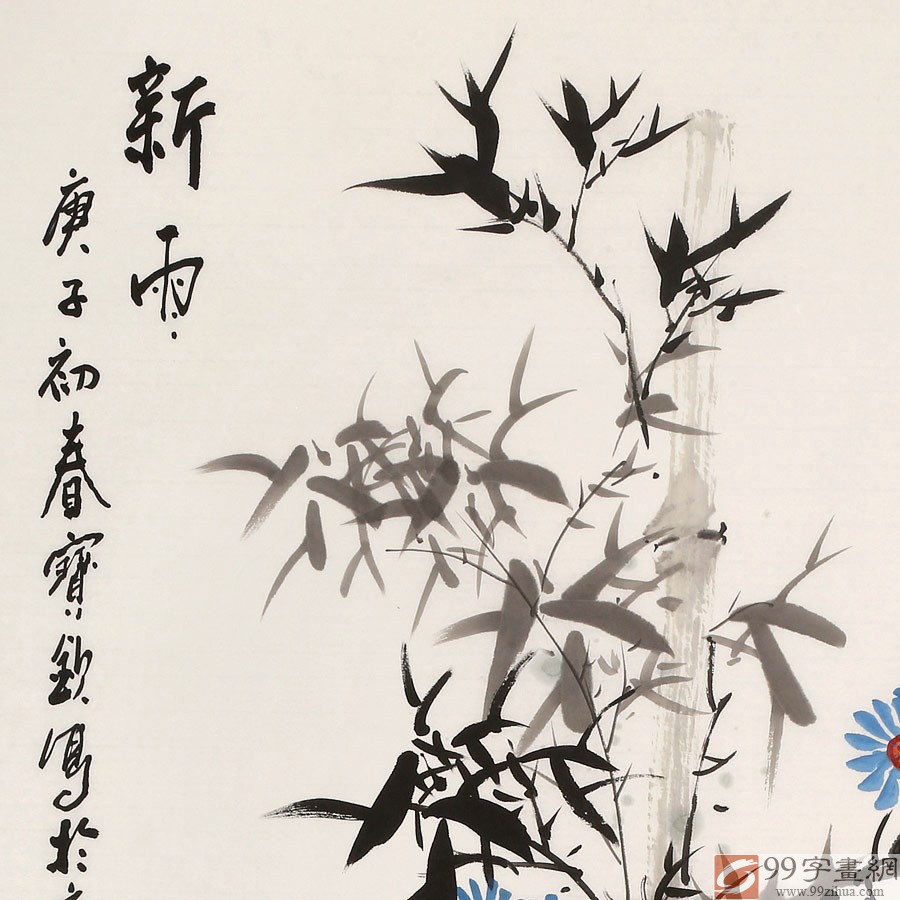 新雨
庚子初春寶欽寫於
99字畫網
www.99zihua.com